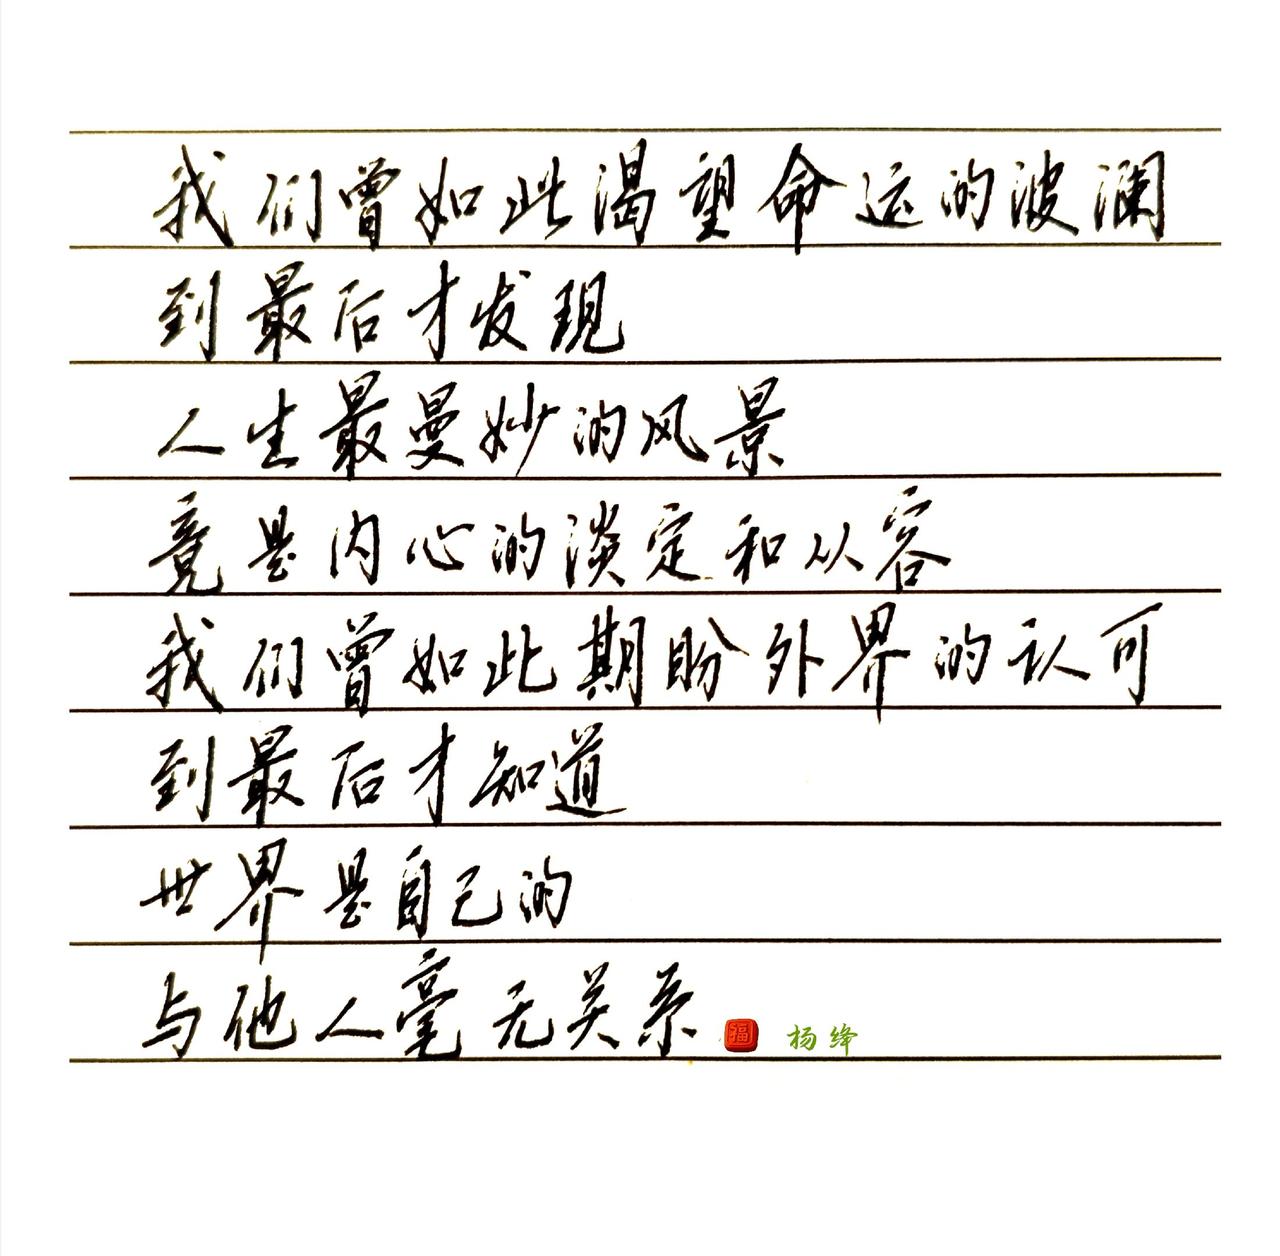 我们曾如此渴望命运的波澜
到最后才发现
人生最曼妙的风景
竟是内心的淡定和从容
我们曾如此期盼外界的认可
到最后才知道
世界是自己的
与他人毫无关系 福 杨绛